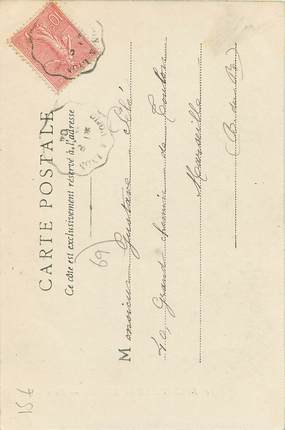 CARTE POSTALE
Ce côté est exclusivement réservé à l'adresse
Monsieur Gustave
Grand chemin de Toulon
Marseille
B. du R.
69
15€
10